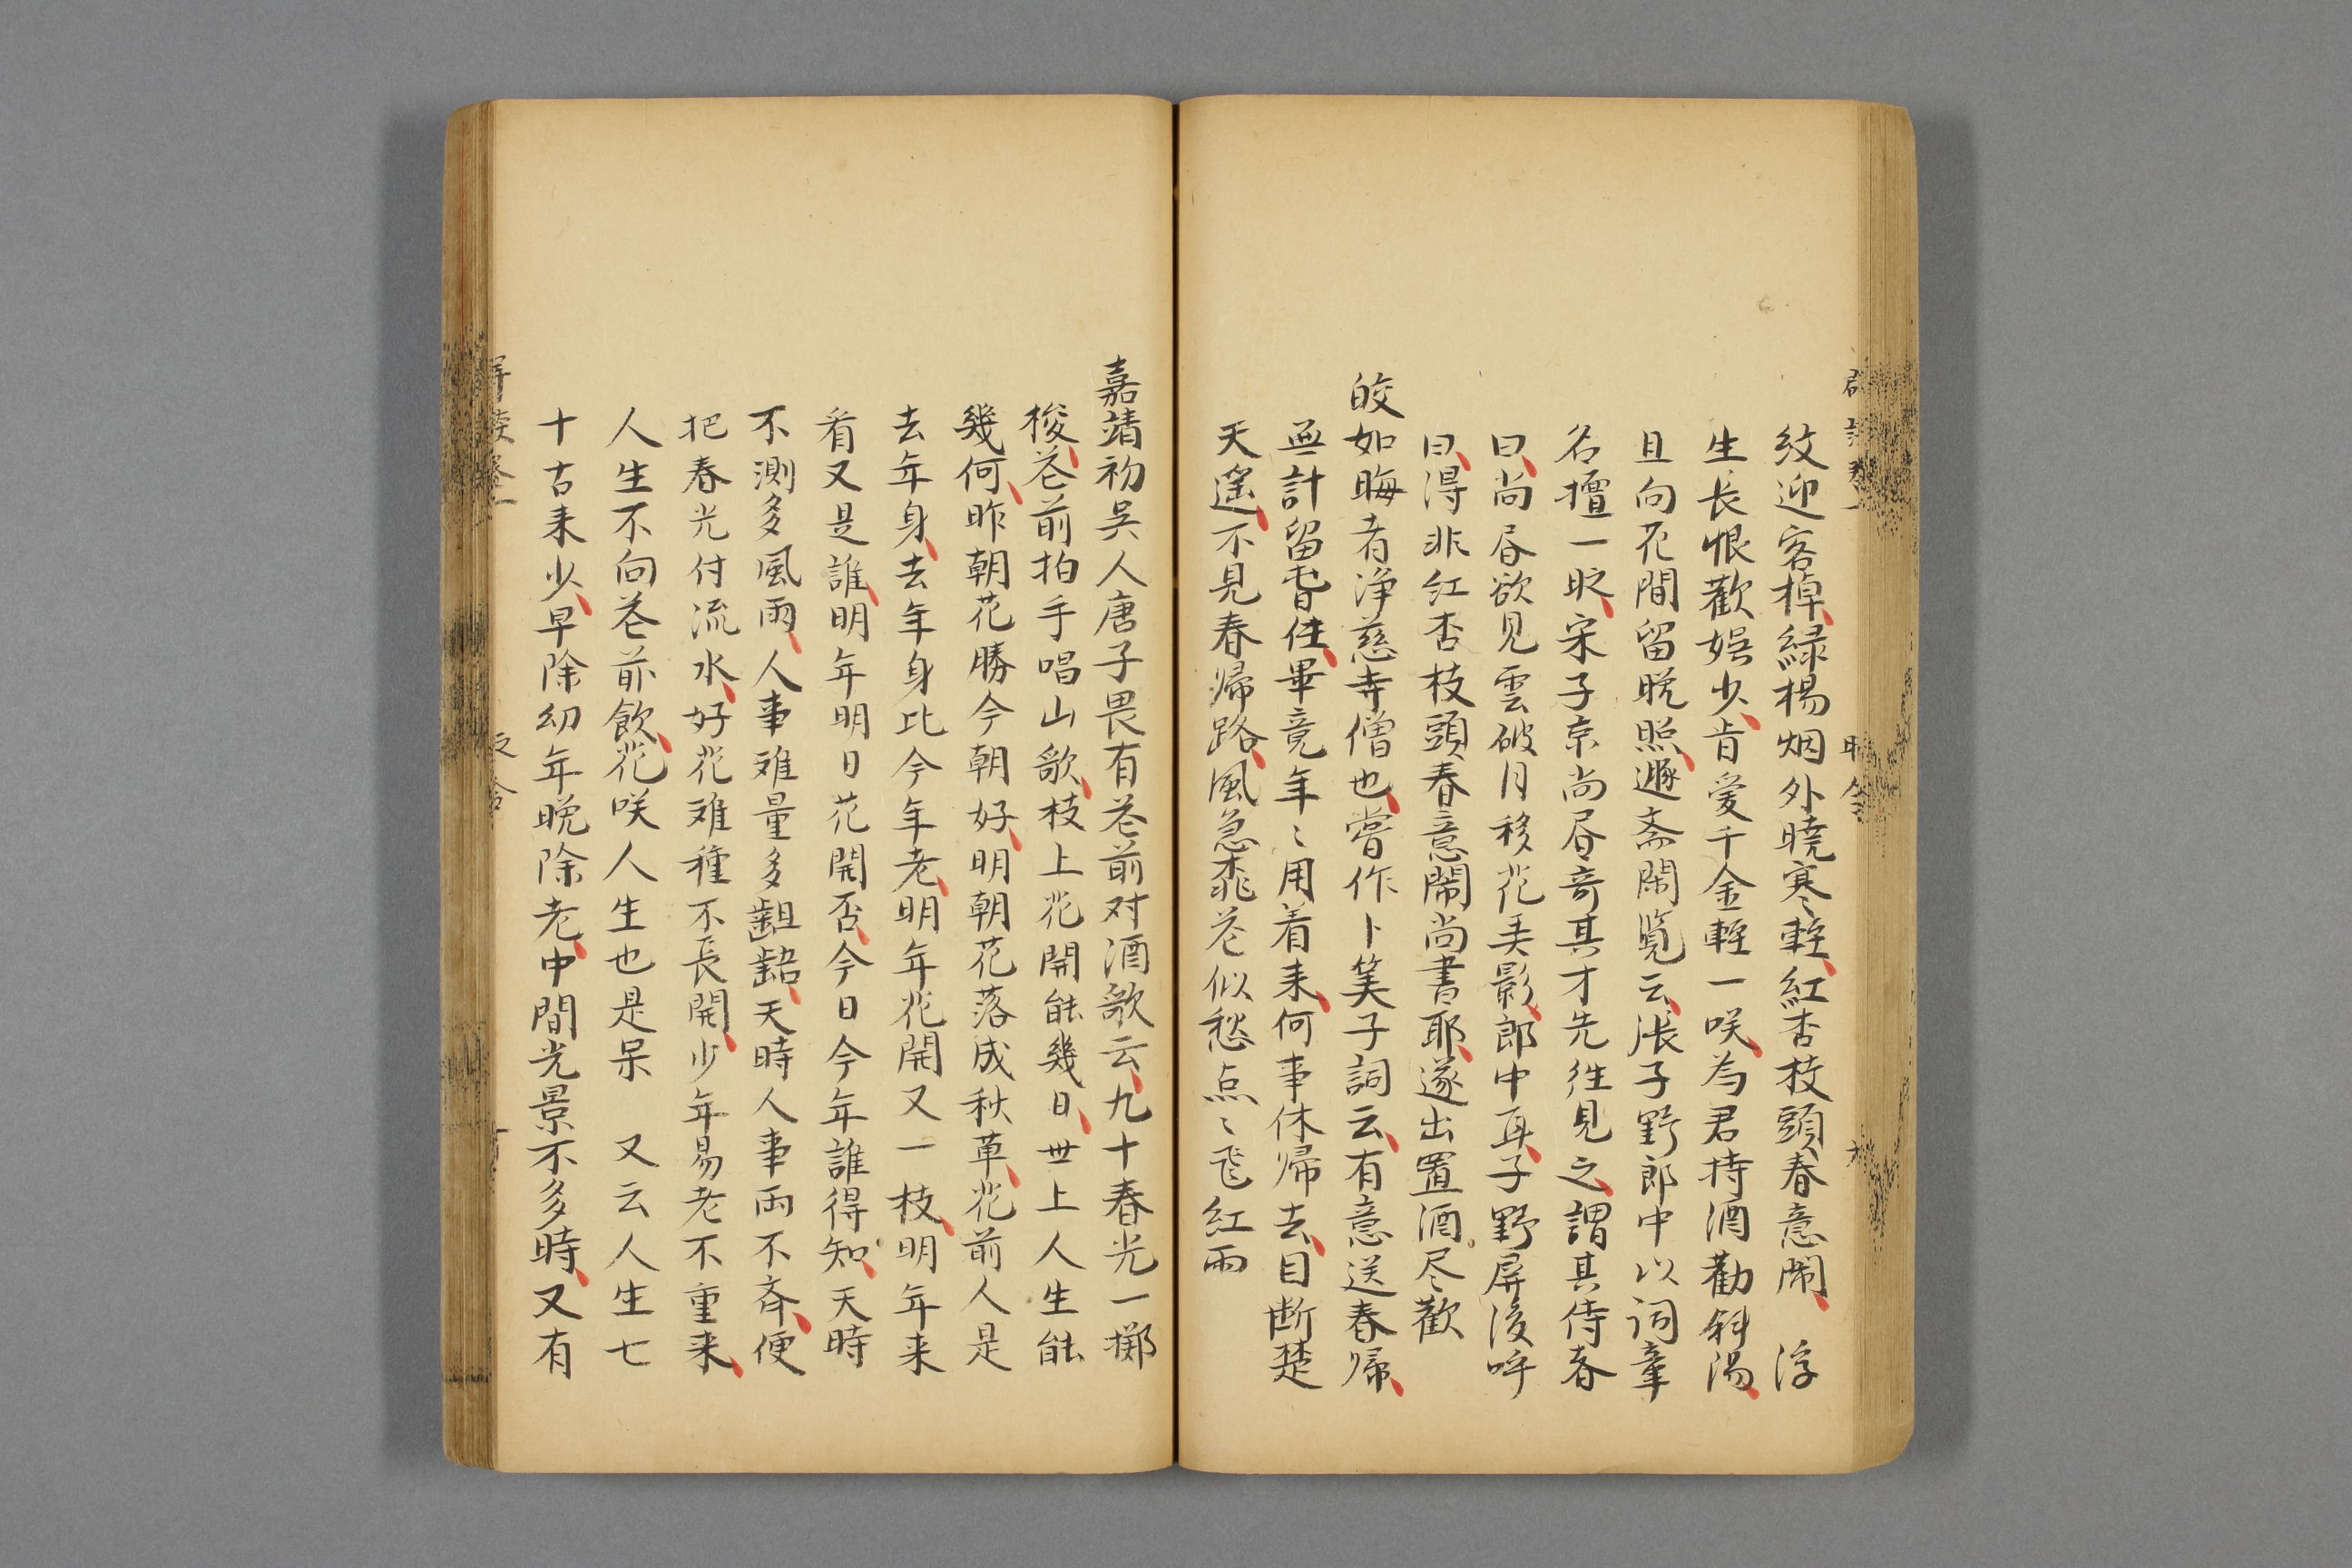 紋迎客棹綠楊烟外曉寒輕紅杏枝頭春意鬧　浮
生長恨歡娛少肯愛千金輕一咲為君持酒勸斜陽
且向花間留晚照遯斎閑覧云張子野郎中以詞章
名擅一时宋子京尚昼奇其才先徃見之謂其侍者
曰尚昼欲見雲破月移花美影郎中耳子野屏後呼
曰得非紅杏枝頭春意鬧尚書耶遂出置酒尽歡
皎如晦者浄慈寺僧也嘗作卜筭子詞云有意送春帰
無計留春住畢竟年〻用着来何事休帰去目断楚
天遥不見春帰路風急桃花似愁点〻飛紅雨
嘉靖初吳人唐子畏有花前对酒歌云九十春光一擲
梭花前拍手唱山歌枝上花開能幾日世上人生能
幾何昨朝花勝今朝好明朝花落成秋草花前人是
去年身去年身比今年老明年花開又一枝明年来
看又是誰明年明日花開否今日今年誰得知天時
不測多風雨人事难量多齟齬天時人事両不斉便
把春光付流水好花难種不長開少年易老不重来
人生不向花前飲花咲人生也是呆　又云人生七
十古来少早除幼年晩除老中間光景不多時又有